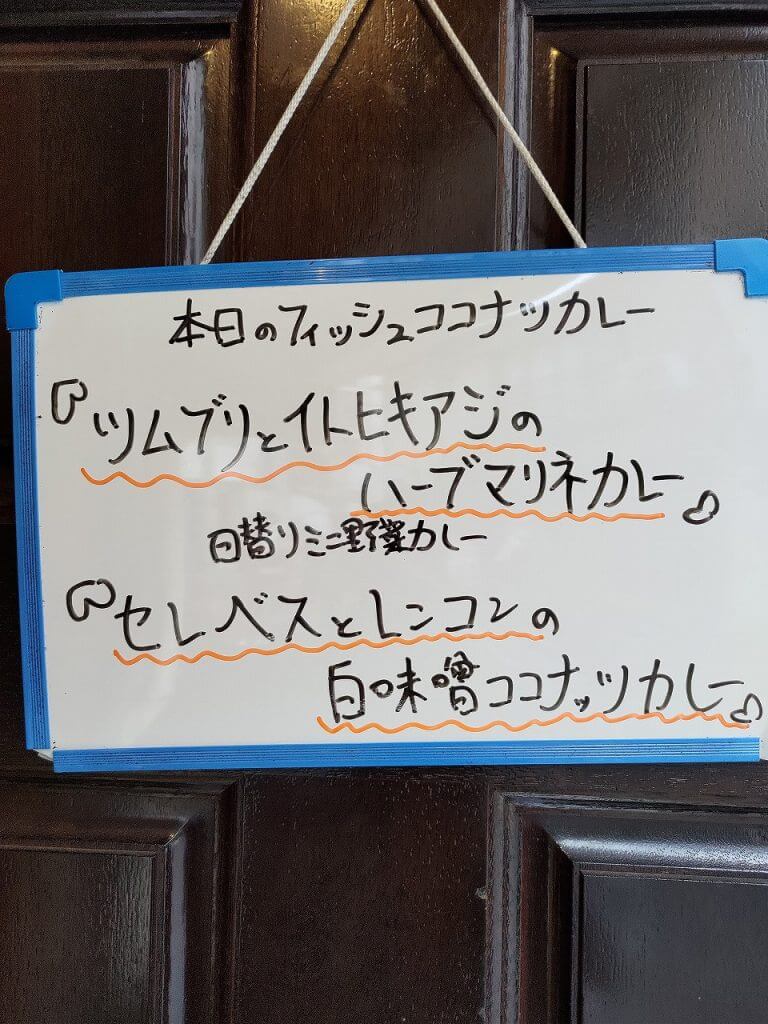 本日のフィッシュココナツカレー
ツムブリとイトヒキアジの
ハーブマリネカレー
日替りミニ野菜カレー
セレベスとレンコンの
白味噌ココナッツカレー